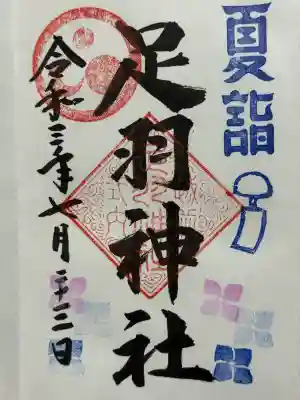 夏詣
足羽神社
令和三年七月二十二日